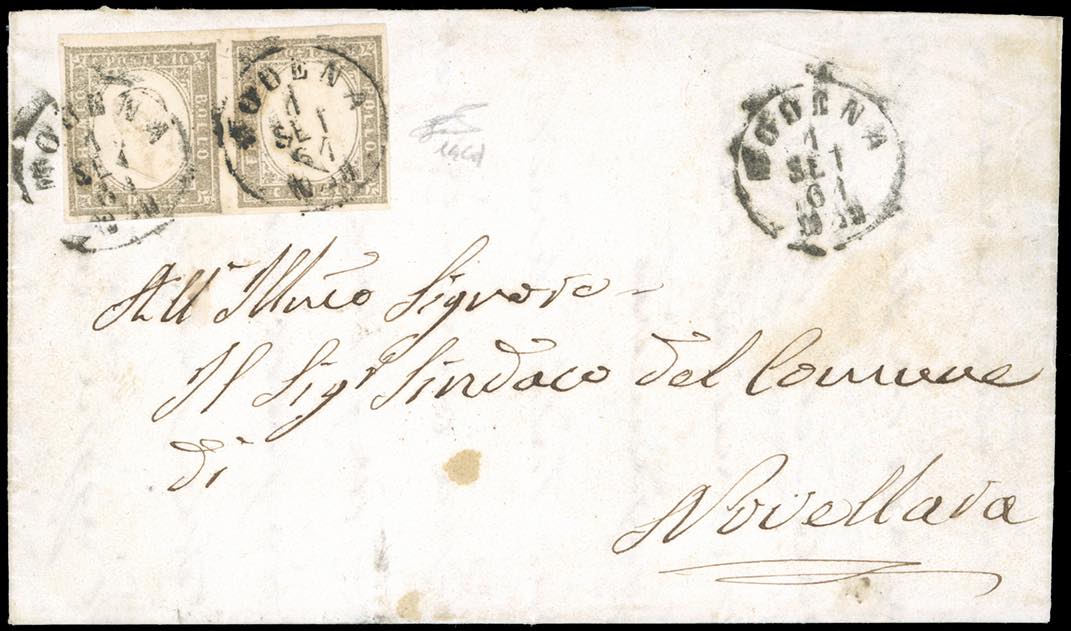 BOLLO
BOLLO
MODENA
1
SET
61
MODENA
1
SET
61
MODENA
1
SET
61
All' Illmo Signore
Il Sigr Sindaco del Comune
di
Novellara